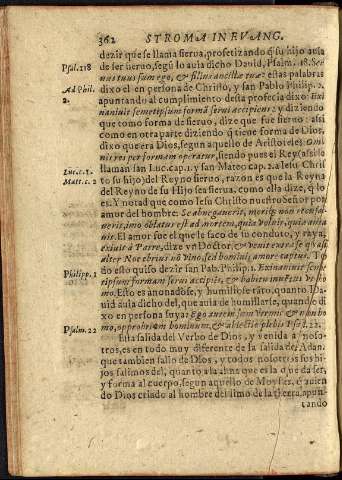 362 STROMA IN EVANG.
dezir que se llama sierua, profetizando q̃ su hijo auia
Psal. 118 de ser sieruo, segũ lo auia dicho Dauid, Psalm. 18. Ser
uus tuus sum ego, & filius ancillæ tuæ: estas palabras
Ad Phil. dixo el en persona de Christo, y san Pablo Philip. 2.
2. apuntando al cumplimiento desta profecia dixo: Exi
naniuit semetipsum formã serui accipiens: y diziendo
que tomo forma de sieruo, dize que fue sieruo: assi
como en otra parte diziendo q̃ tiene forma de Dios,
dixo que era Dios, segun aquello de Aristoteles: Om
nis res per formam operatur, siendo pues el Rey (assi le
Luc. c. 1. llaman san Luc. cap. 1. y san Mateo cap. 2. a Iesu Chris
Matt. c. 2 to su hijo) del Reyno sieruo, razon es que la Reyna
del Reyno de su Hijo sea sierua, como ella dize, q̃ lo
es. Y notad que como Iesu Christo nuestro Señor por
amor del hombre: Se abnegauerit, mortẽ non recusa
uerit, imò oblatus est ad mortem, quia voluit, quia ama
uit. El amor fue el que le saco de su conduto, y raya;
exiuit à Patre, dize vn Doctor, & venit extra se quasi
alter Noe ebrius nõ vino, sed hominis amore captus. To
Philipp. 2 do esto quiso dezir san Pab. Philip. 2. Exinaniuit seme
tipsum formam serui accipiẽs, & habitu inuẽtus vt ho
mo. Esto es anonadose, y humillose tãto, quanto Da
uid auia dicho del, que auia de humillarse, quando di
xo en persona suya: Ego autem sum vermis & non ho
Psalm. 22 mo, opprobrium hominum, & abiectio plebis Psa. 22.
Esta salida del Verbo de Dios, y venida à noso-
tros, es en todo muy diferente de la salida de Adan,
que tambien salio de Dios, y todos nosotros sus hi-
jos salimos del, quanto a la alma que es la q̃ da da ser,
y forma al cuerpo, segun aquello de Moyses, q̃ auien
do Dios criado al hombre del limo de la tierra, apun-
tando